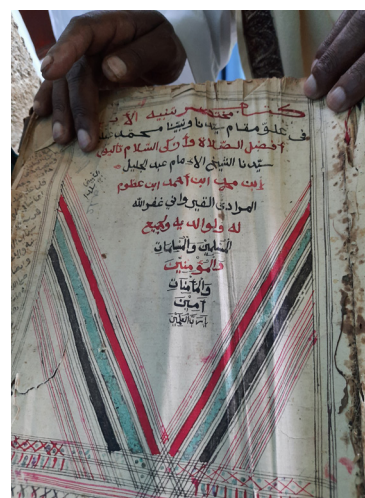 كتاب مختصر تنبيه الأنام
في علو مقام سيدنا ونبينا محمد عليه
أفضل الصلاة وأزكى السلام تأليف
سيدنا الشيخ الإمام عبد الجليل
ابن محمد ابن أحمد ابن عظوم
المرادي القيرواني غفر الله
له ولوالديه ولجميع
المسلمين والمسلمات
والمؤمنين
والمؤمنات
آمين
يا رب العالمين